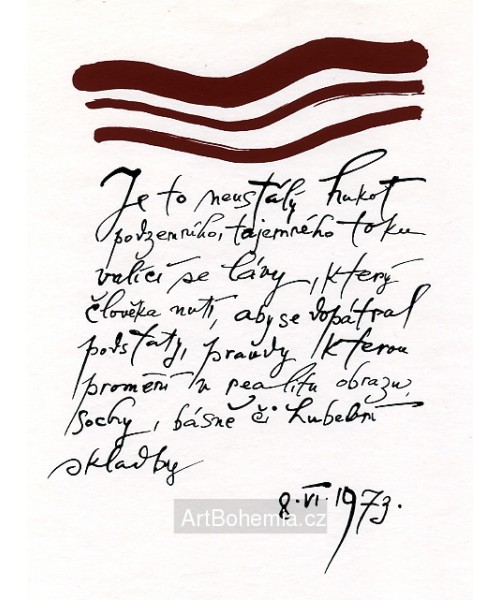 Je to neustálý hukot
podzemního, tajemného toku
valící se lávy, který
člověka nutí, aby se dopátral
podstaty, pravdy kterou
promění v realitu obrazu,
sochy, básně či hudební
skladby
8. VI. 1973.
ArtBohemia.cz